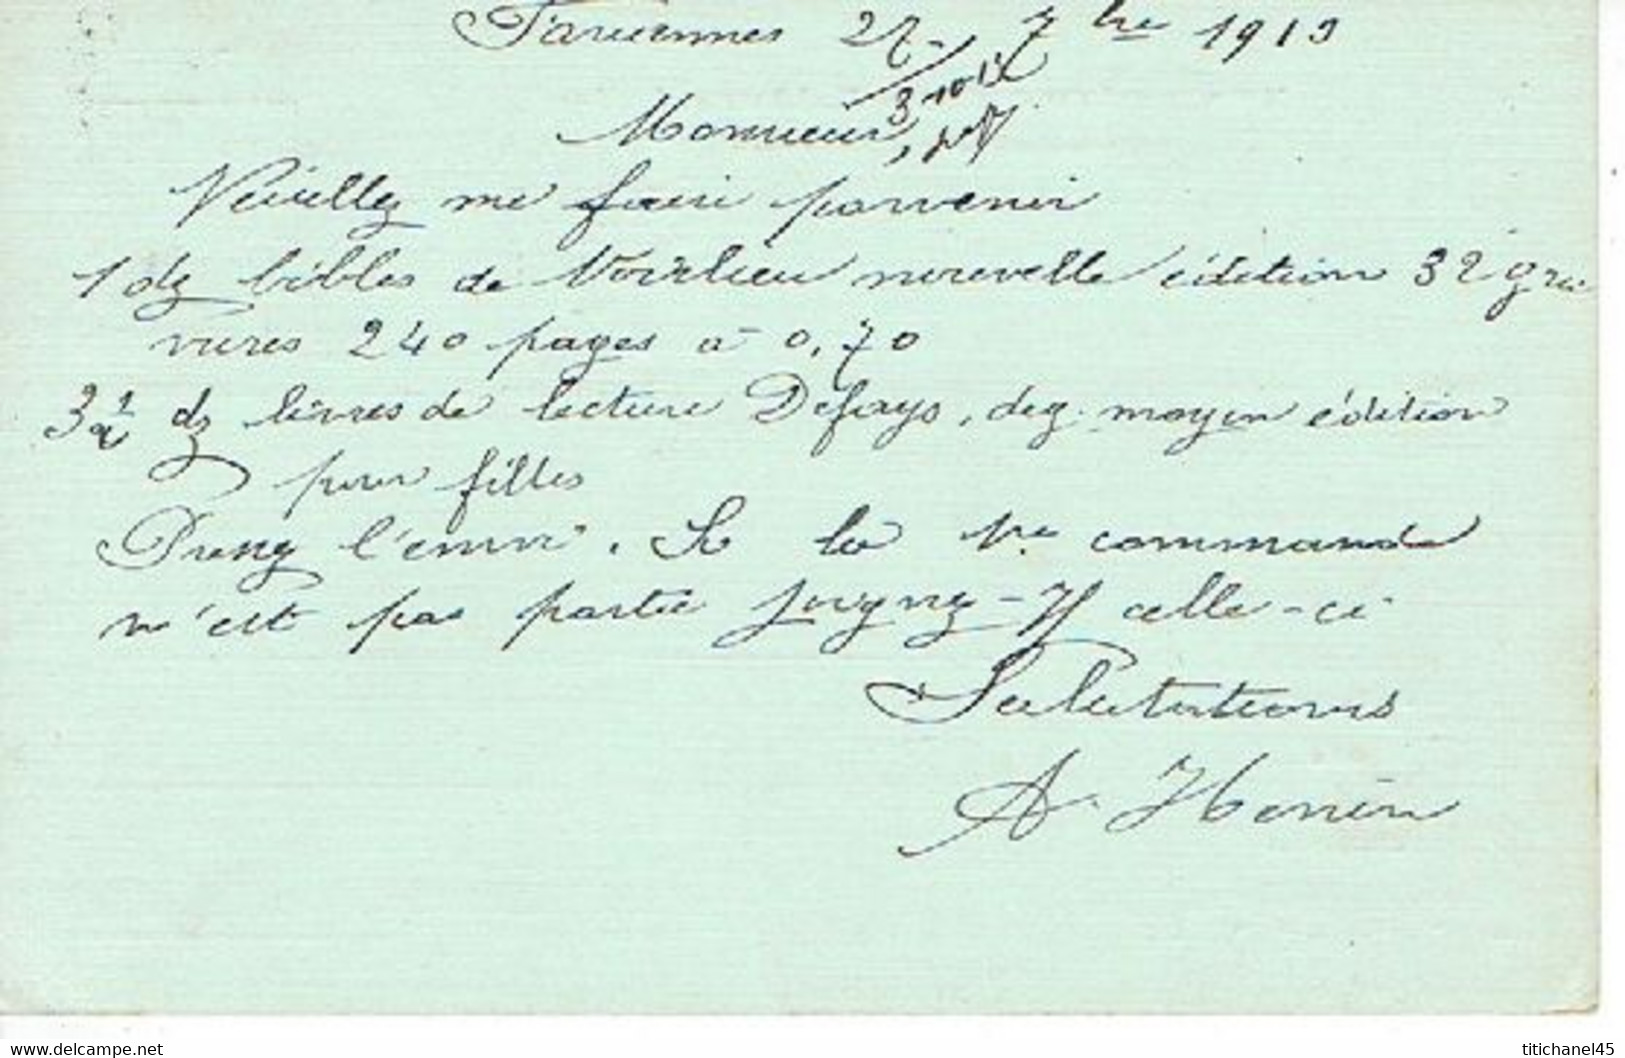 Farciennes 27 - 7bre 1913
3-10-13
Monsieur,
Veuillez me faire parvenir
1 dz bibles de Noirlieu nouvelle édition 32 gra
vures 240 pages à 0,70
3 1/2 dz livres de lecture Defays, deg. moyen édition
pour filles
Pressez l'envoi. Si la 1re commande
n'est pas partie joignez-y celle-ci
Salutations
A. Henin
delcampe.net
titichanel45